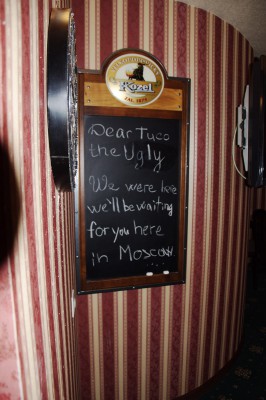 Kozel
Dear Tuco
the Ugly
We were here
we'll be waiting
for you here
in Moscow
...